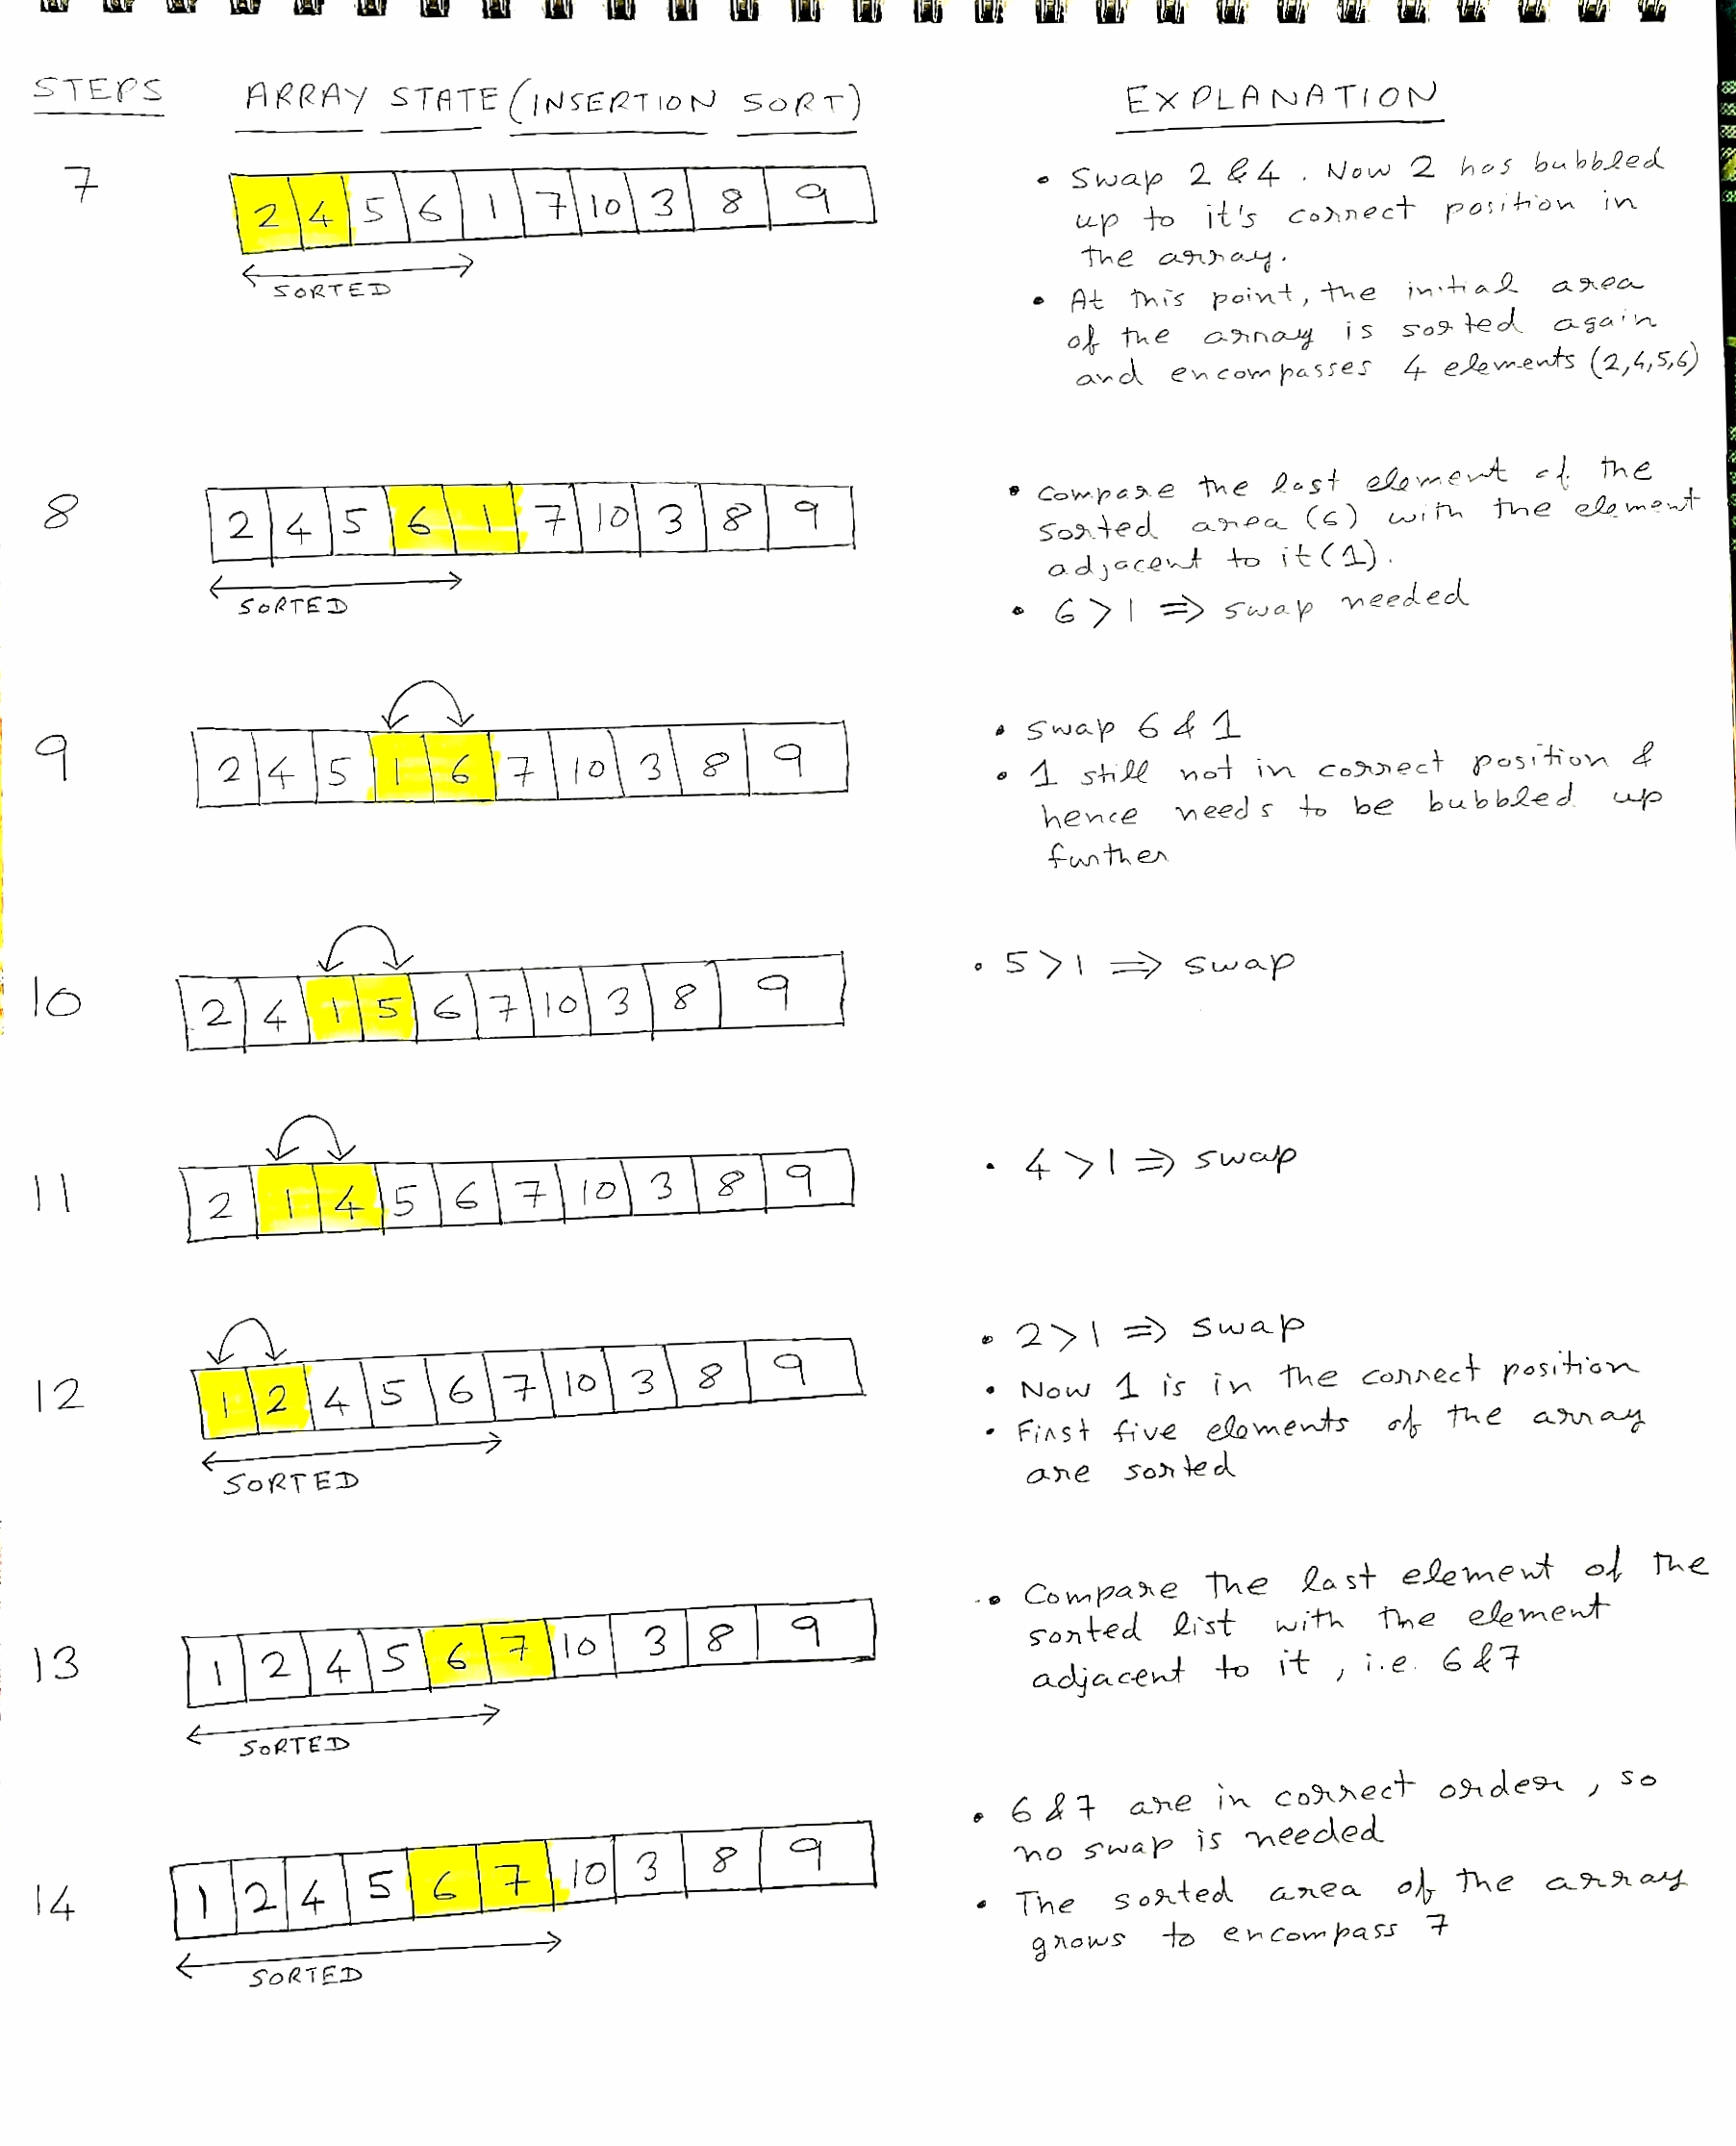 STEPS ARRAY STATE (INSERTION SORT) EXPLANATION
7
2 4 5 6 1 7 10 3 8 9
SORTED
• Swap 2 & 4. Now 2 has bubbled
up to it's correct position in
the array.
• At this point, the initial area
of the array is sorted again
and encompasses 4 elements (2,4,5,6)
8
2 4 5 6 1 7 10 3 8 9
SORTED
• Compare the last element of the
sorted area (6) with the element
adjacent to it (1).
• 6 > 1 => swap needed
9
2 4 5 1 6 7 10 3 8 9
• swap 6 & 1
• 1 still not in correct position &
hence needs to be bubbled up
further
10
2 4 1 5 6 7 10 3 8 9
• 5 > 1 => swap
11
2 1 4 5 6 7 10 3 8 9
• 4 > 1 => swap
12
1 2 4 5 6 7 10 3 8 9
SORTED
• 2 > 1 => swap
• Now 1 is in the correct position
• First five elements of the array
are sorted
13
1 2 4 5 6 7 10 3 8 9
SORTED
• Compare the last element of the
sorted list with the element
adjacent to it, i.e. 6 & 7
14
1 2 4 5 6 7 10 3 8 9
SORTED
• 6 & 7 are in correct order, so
no swap is needed
• The sorted area of the array
grows to encompass 7